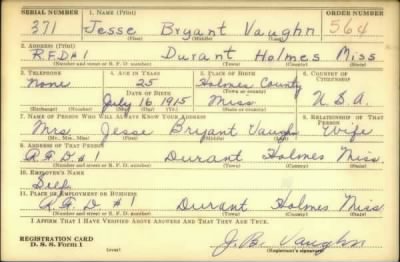 SERIAL NUMBER 1. NAME (Print) ORDER NUMBER
371 Jesse Bryant Vaughn 564
(First) (Middle) (Last)
2. ADDRESS (Print)
R.F.D #1 Durant Holmes Miss
(Number and street or R. F. D. number) (Town) (County) (State)
3. TELEPHONE 4. AGE IN YEARS 5. PLACE OF BIRTH 6. COUNTRY OF CITIZENSHIP
None 25 Holmes County
DATE OF BIRTH (Town or county)
July 16 1915 Miss U.S.A.
(Exchange) (Number) (Mo.) (Day) (Yr.) (State or country)
7. NAME OF PERSON WHO WILL ALWAYS KNOW YOUR ADDRESS 8. RELATIONSHIP OF THAT PERSON
Mrs. Jesse Bryant Vaughn Wife
(Mr., Mrs., Miss) (First) (Middle) (Last)
9. ADDRESS OF THAT PERSON
R.F.D #1 Durant Holmes Miss.
(Number and street or R. F. D. number) (Town) (County) (State)
10. EMPLOYER'S NAME
Self
11. PLACE OF EMPLOYMENT OR BUSINESS
R.F.D. #1 Durant Holmes Miss.
(Number and street or R. F. D. number) (Town) (County) (State)
I AFFIRM THAT I HAVE VERIFIED ABOVE ANSWERS AND THAT THEY ARE TRUE.
REGISTRATION CARD
D. S. S. Form 1 J.B. Vaughn
(over) (Registrant's signature)